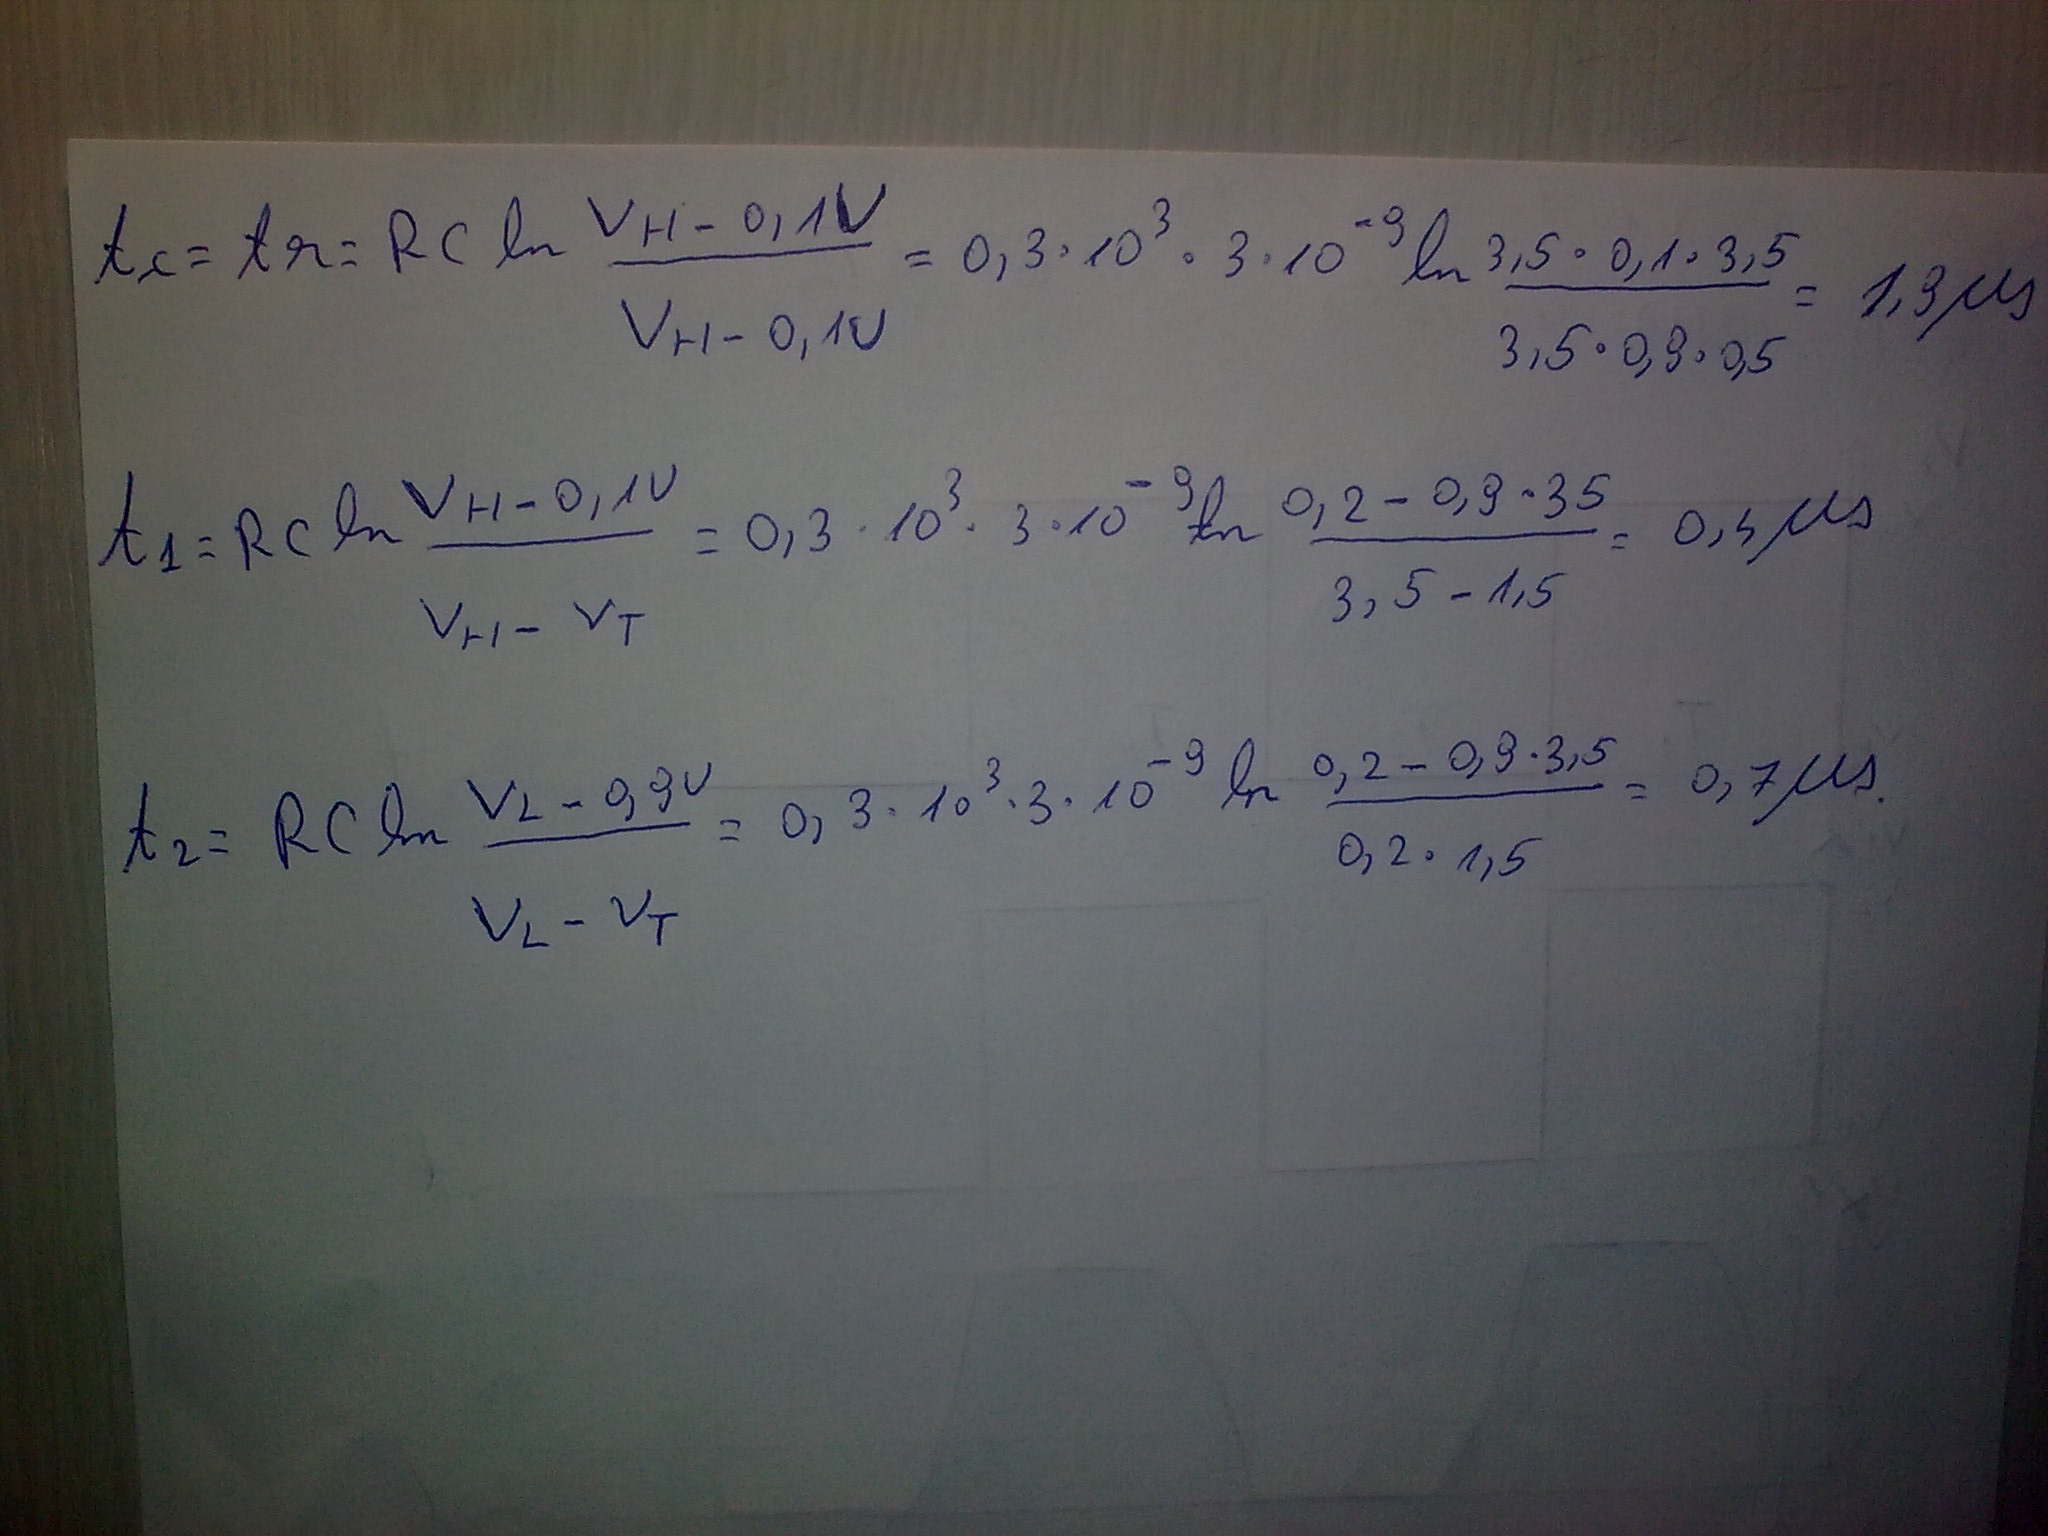 tc = tr = RC ln (VH - 0,1V)/(VH - 0,1V) = 0,3·10³·3·10⁻⁹ ln (3,5·0,1·3,5)/(3,5·0,9·0,5) = 1,9 μs
t1 = RC ln (VH - 0,1V)/(VH - VT) = 0,3·10³·3·10⁻⁹ ln (0,2 - 0,9·35)/(3,5 - 1,5) = 0,4 μs
t2 = RC ln (VL - 0,9V)/(VL - VT) = 0,3·10³·3·10⁻⁹ ln (0,2 - 0,9·3,5)/(0,2·1,5) = 0,7 μs.